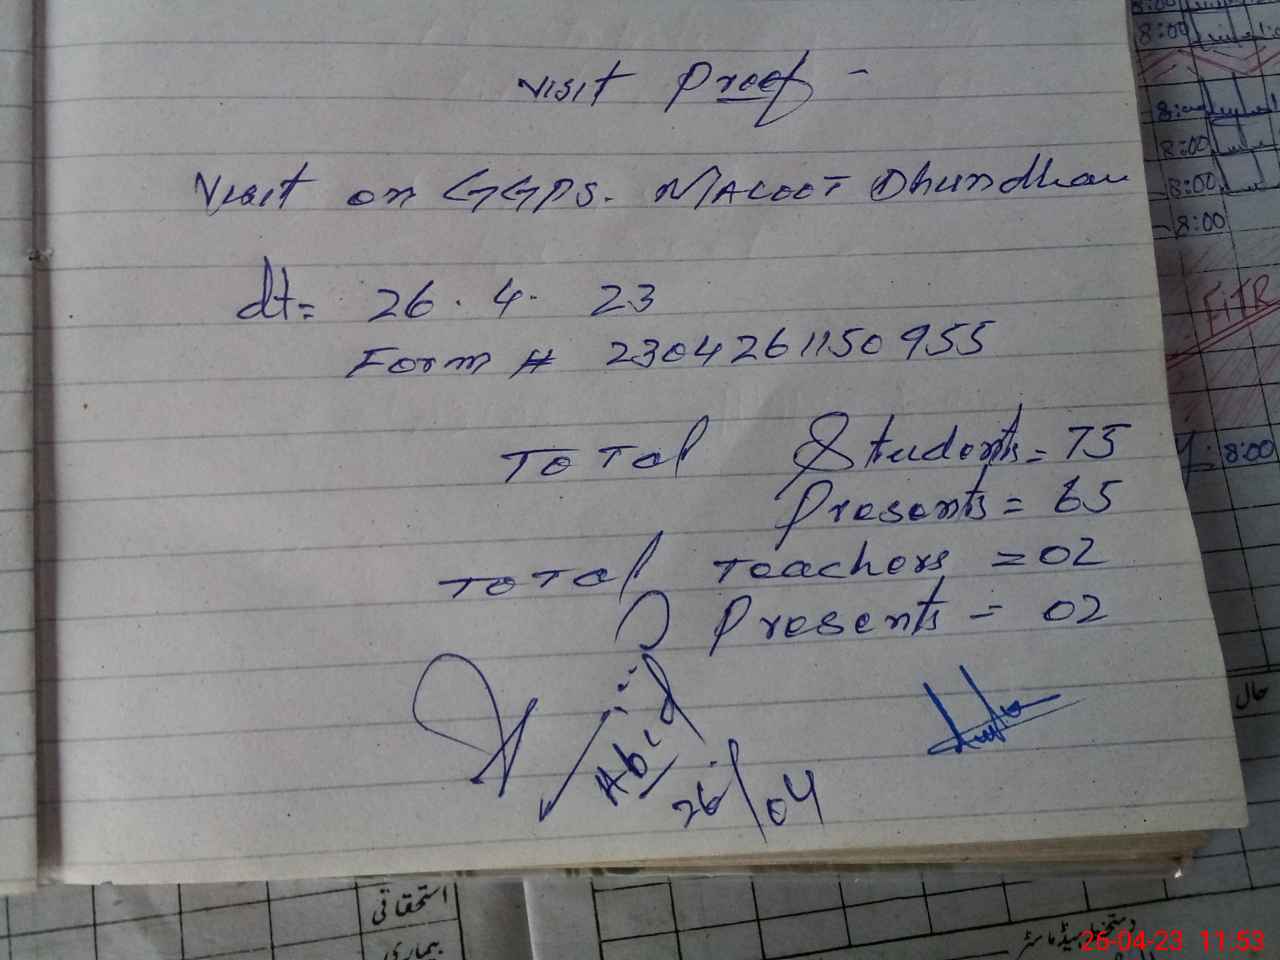 Visit Proof -
Visit on GGPS. MACOOT Dhundhan
dt= 26. 4. 23
Form # 2304261150955
Total Students = 75
Presents = 65
Total Teachers = 02
Presents = 02
Abid
26/04
8:00
8:00
8:00
8:00
8:00
FITR
8:00
حال
استحقاقی
بیماری
دستخط ہیڈ ماسٹر
26-04-23 11:53